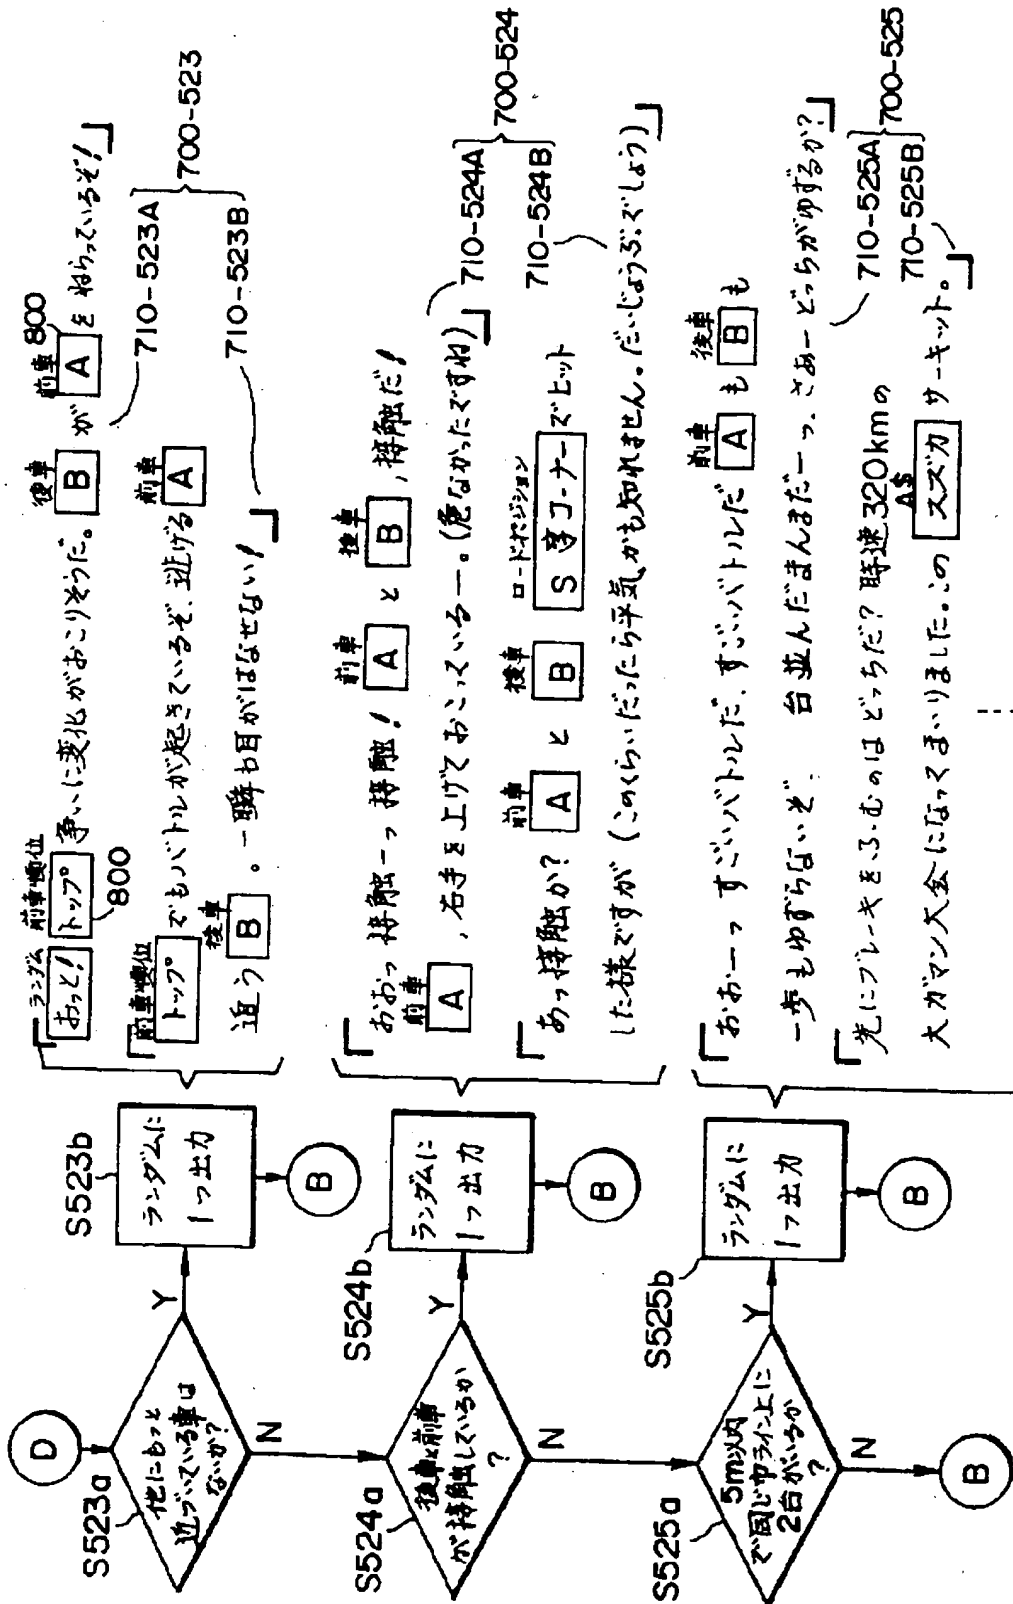 D
S523a
他にもっと
近づいている車は
ないか?
Y
N
S523b
ランダムに
1つ出力
B
ランダム 前車順位
「おっと! トップ 争いに変化がおこりそうだ。 後車 B が 前車 A をねらっているぞ!」
800
800
710-523A
「前車順位 トップ でもバトルが起きているぞ、逃げる 前車 A
追う 後車 B 。一瞬も目がはなせない!」
710-523B
700-523
S524a
後車と前車
が接触しているか
?
Y
N
S524b
ランダムに
1つ出力
B
「おおっ接触ーっ接触! 前車 A と 後車 B ,接触だ!
前車 A ,右手を上げておこっているー。(危なかったですね)」
710-524A
「あっ接触か? 前車 A と 後車 B ロードポジション S字コーナー でヒット
した様ですが(このくらいだったら平気かも知れません。だいじょうぶでしょう)」
710-524B
700-524
S525a
5m以内
で同じ巾ライン上に
2台がいるか
?
Y
N
B
S525b
ランダムに
1つ出力
B
「おおーっすごいバトルだ、すごいバトルだ 前車 A も 後車 B も
一歩もゆずらないぞ、 台並んだまんまだーっ、さあーどっちがゆずるか?」
710-525A
「先にブレーキをふむのはどっちだ? 時速320kmの
大ガマン大会になってまいりました。この A$ スズカ サーキット。」
710-525B
700-525